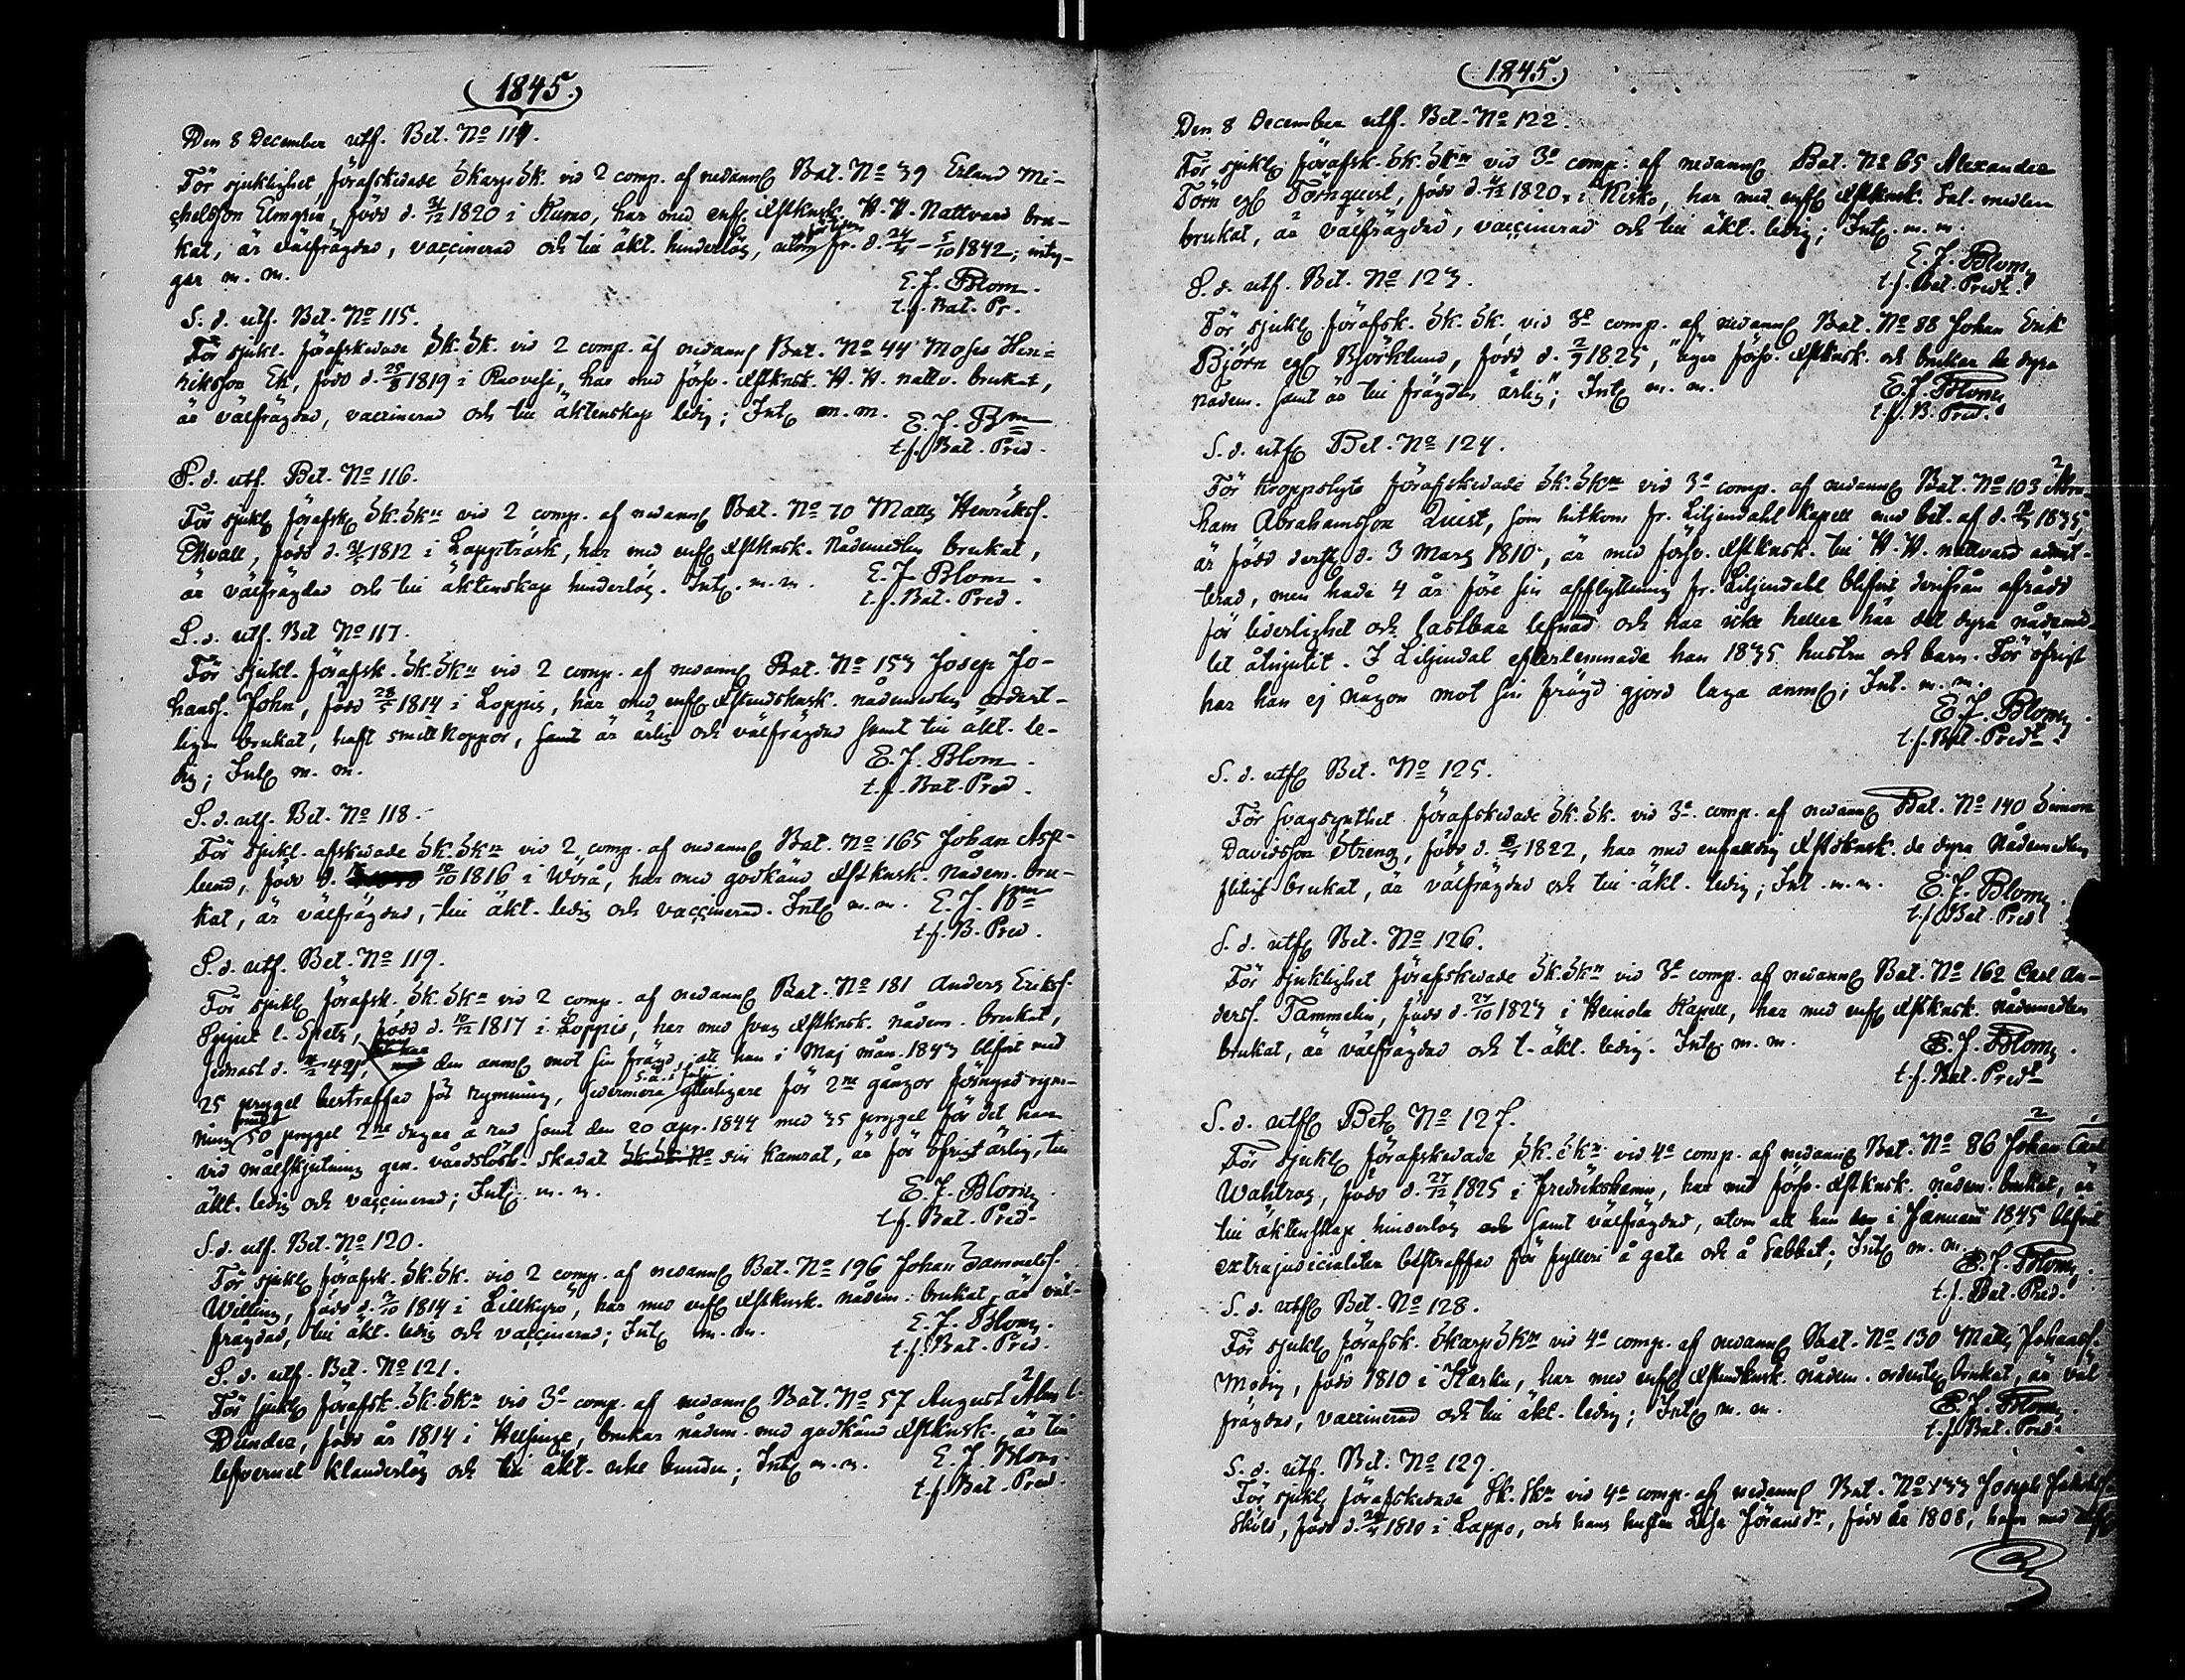 1845.
Den 8 December utf. Bet. No 114.
För sjuklighet förafskedade SkarpSk. vid 2 comp. af nedann Bat. No 39 Erland Mi-
chelsson Elmgrén, född d. 1820 i Kumo, har med enf. Xstknsk. H. H. Nattvard bru-
kat, är välfrägdad, vaccinerad och till äkt. hinderlös, utom fr. d. 24/4 - 5/10 1842; inty-
gar m. m.
E. J. Blom.
t. f. Bat. Pr.
S. d. utf. Bet. No 115.
För sjukl. förafskedade Sk. Sk. vid 2 comp. af nedann Bat. No 44 Moses Hen-
riksson Ek, född d. 25/8 1819 i Ruovesi, har med försv. Xstknsk. H. H. nattv. brukat,
är välfrägdad, vaccinerad och till äktenskap ledig; Int m. m.
E. J. Bm
t. f. Bat. Pred.
S. d. utf. Bet. No 116.
För sjukl förafsk Sk. Skn vid 2 comp. af nedann Bat. No 70 Matts Henrikss.
Ekvall, född d. 1812 i Lappträsk, har med enf Xstknsk. Nådemedlen brukat,
är välfrägdad och till äktenskap hinderlös. Int. m. m.
E. J. Blom.
t. f. Bat. Pred.
S. d. utf. Bet No 117.
För Sjukl. förafsk. Sk. Skn vid 2 comp. af nedann Bat. No 153 Josep Jo-
hanss. John, född 28/5 1814 i Loppis, har med enf Xstendsknsk. nådemedlen ordent-
ligen brukat, haft smittkoppor, samt är ärlig och välfrägdad samt till äkt. le-
dig; Int m. m.
E. J. Blom.
t. f. Bat. Pred.
S. d. utf. Bet. No 118.
För sjukl. afskedade Sk. Skn vid 2 comp. af nedann Bat. No 165 Johan Asp-
lund, född d. 10/10 1816 i Wörå, har med godkänd Xstknsk. Nådem. bru-
kat, är välfrägdad, till äkt. ledig och vaccinerad. Int m. m.
E. J. Bm
t. f. B. Pred.
S. d. utf. Bet. No 119.
För sjukl förafsk. Sk. Skn vid 2 comp. af nedann Bat. No 181 Anders Erikss.
Spjut l. Spets, född d. 10/12 1817 i Loppis, har med svag Xstknsk. nådem. brukat,
sednast d. 42, med den anm mot sin frägd, att han i Maj mån. 1843 blifvit med
25 prygel bestraffad för rymning, sedermera s. å. i Juli ytterligare för 2ne gånger förnyad rym-
ning med 50 prygel 2ne dagar å rad samt den 20 apr. 1844 med 35 prygel för det han
vid målskjutning gen. vårdslösh. skadat Sk. Sk. No sin kamrat, är för öfrigt ärlig, till
äkt. ledig och vaccinerad; Int. m. m.
E. J. Blom
t. f. Bat. Pred.
S. d. utf. Bet. No 120.
För sjukl förafsk. Sk. Sk. vid 2 comp. af nedann Bat. No 196 Johan Sammelss.
Willing, född d. 1814 i Lillkyro, har med enf Xstknsk. nådem. brukat, är väl-
frägdad, till äkt. ledig och vaccinerad; Int m. m.
E. J. Blom.
t. f. Bat. Pred.
S. d. utf. Bet. No 121.
För sjukl förafsk. Sk. Skn vid 3e comp. af nedann Bat. No 57 August Alm l.
Dunder, född år 1814 i Helsinge, brukar nådem. med godkänd Xstknsk. är till
lefvernet klanderlös och till äkt. icke bunden; Int m. m.
E. J. Blom.
t. f. Bat. Pred.
1845.
Den 8 December utf. Bet. No 122.
För sjukl förafsk. Sk. Skn vid 3e comp. af nedann Bat. No 65 Alexander
Törn egl Törnquist, född d. 1820 i Kisko, har med enf Xstknsk. Sal. medlen
brukat, är välfrägdad, vaccinerad och till äkt. ledig; Int. m. m.
E. J. Blom
t. f. Bat. Predt.
S. d. utf. Bet. No 123.
För sjukl förafsk. Sk. Sk. vid 3e comp. af nedann Bat. No 88 Johan Erik
Björn egl Björklund, född d. 2/7 1825, "äger försv. Xstknsk. och brukar de dyra
nådem. samt är till frägden ärlig"; Int m. m.
E. J. Blom
t. f. B. Pred.
S. d. utf Bet. No 124.
För kroppslyte förafskedade Sk. Skn vid 3e comp. af nedann Bat. No 103 Abra-
ham Abrahamsson Quist, som hitkom fr. Liljendahl Kapell med bet. af d. 1835,
är född ders d. 3 Mars 1810, är med försv. Xstknsk. till H. H. nattvard admit-
terad, men hade 4 år före sin afflyttning fr. Liljendahl blifvit derifrån afrådd
för liderlighet och lastbar lefnad och har icke heller här det dyra nådemed-
let åtnjutit. I Liljendal efterlemnade han 1835 hustru och barn. För öfrigt
har han ej någon mot sin frägd gjord laga anm; Int. m. m.
E. J. Blom
t. f. Bat. Predt.
S. d. utf Bet. No 125.
För svagsynthet förafskedade Sk. Sk. vid 3e comp. af nedann Bat. No 140 Simon
Davidsson Streng, född d. 1822, har med enfaldig Xstdknsk. de dyra Nådemedlen
flitigt brukat, är välfrägdad och till äkt. ledig; Int. m. m.
E. J. Blom
t. f. Bat. Pred.
S. d. utf Bet. No 126.
För sjuklighet förafskedade Sk. Skn vid 3e comp. af nedann Bat. No 162 Carl An-
derss. Tammelin, född d. 27/10 1823 i Heinola Kapell, har med enf Xstknsk. nådemedlen
brukat, är välfrägdad och t. äkt. ledig. Int m. m.
E. J. Blom.
t. f. Bat. Predt
S. d. utf Bet No 127.
För sjukl förafskedade Sk. Skn vid 4e comp. af nedann Bat. No 86 Johan Carl
Wahtras, född d. 27/12 1825 i Fredrikshamn, har med försv. Xstknsk. nådem. brukat, är
till äktenskap hinderlös och samt välfrägdad, utom att han i Januari 1845 blifvit
extrajudicialiter bestraffad för fylleri å gata och å Sabbat; Int m. m.
E. J. Blom.
t. f. Bat. Pred.
S. d. utf Bet. No 128.
För sjukl förafsk. SkarpSkn vid 4e comp. af nedann Bat. No 130 Matts Johanss.
Modig, född 1810 i Karku, har med enf Xstendknsk. nådem. ordentl brukat, är väl-
frägdad, vaccinerad och till äkt. ledig; Int m. m.
E. J. Blom.
t. f. Bat. Pred.
S. d. utf. Bet. No 129.
För sjukl förafskedade Sk. Skn vid 4e comp. af nedann Bat. No 133 Joseph
Sköld, född d. 1810 i Lappo, och hans hustru Lisa Jöransdr, född år 1808, hafva med